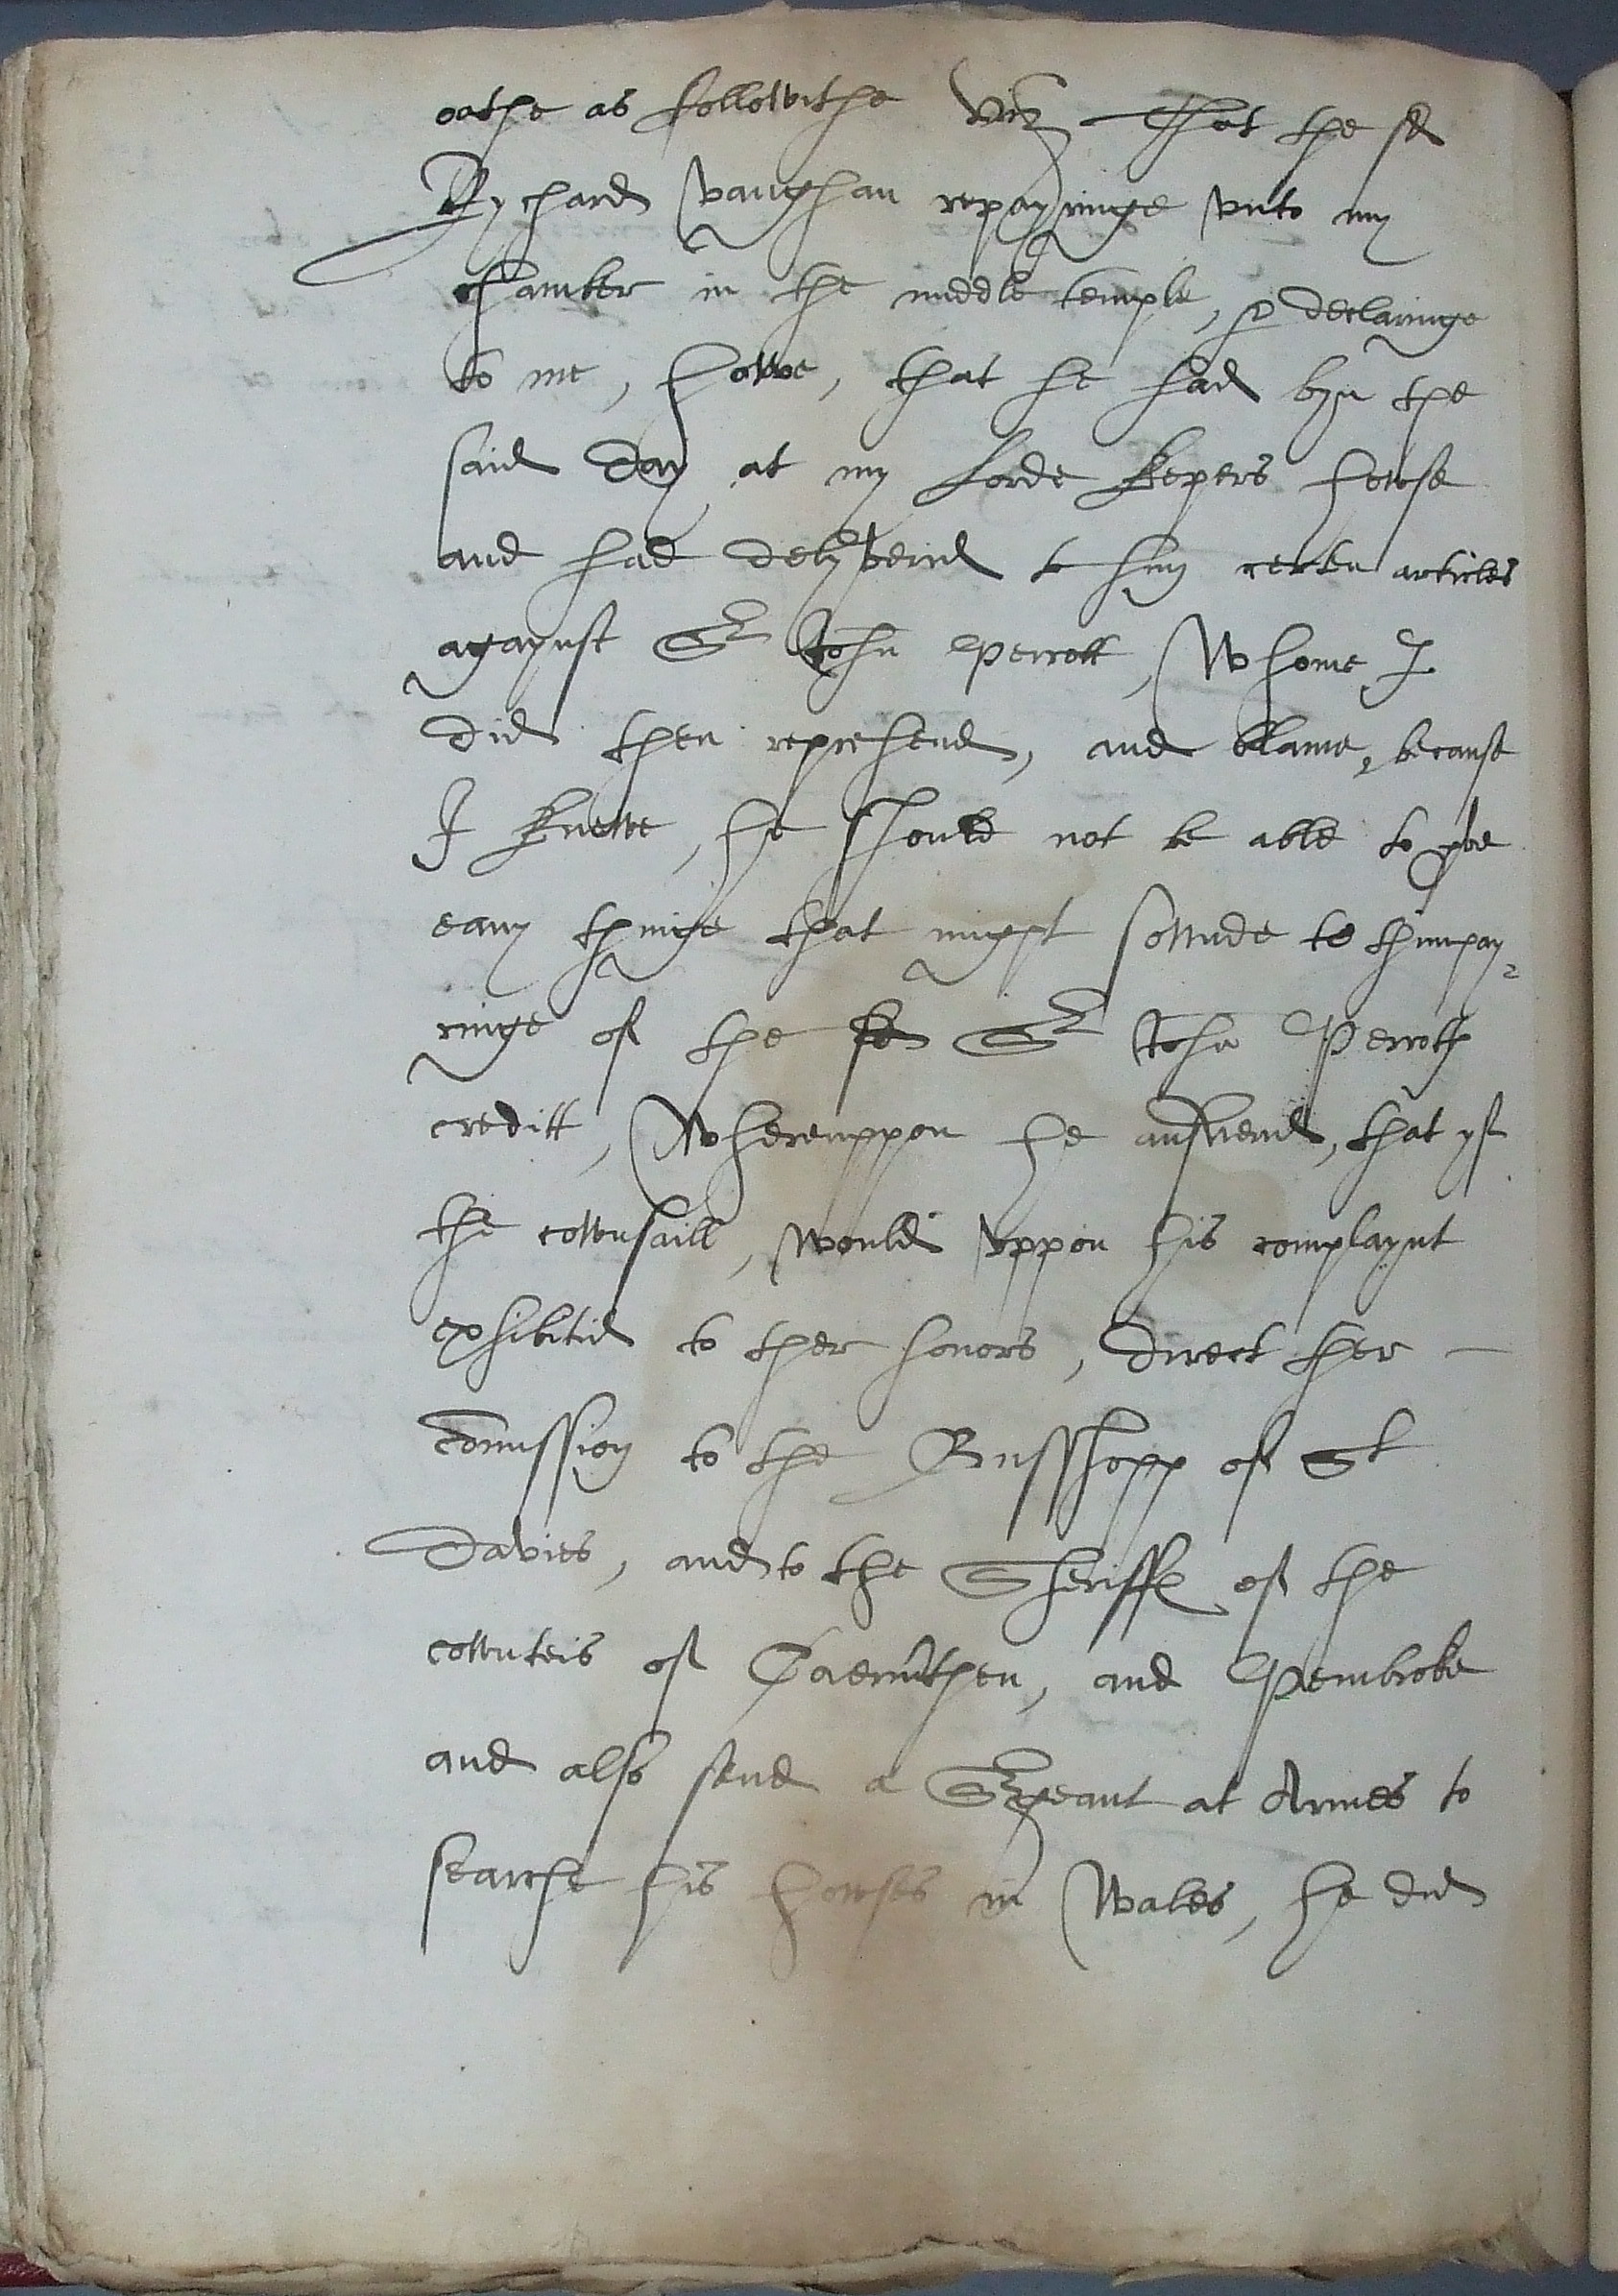 oathe as followithe viz That the sd
Rychard vaughan repayringe vnto my
chamber in the middle temple, & declaringe
to me, howe, that he had byn the
said day at my Lorde kepers howse
and had delyverid to hym certen articles
agaynst Sr John Perrott, Whome I
did then reprehend, and blame, because
I knewe, he should not be able to prve
eany thinge that might sownde to thimpay=
ringe of the sd Sr John Perrotts
creditt, Whereuppon he answerid, that yf
the cownsaill, would vppon his complaynt
exhibitid to ther honors, direct ther
comission to the Busshopp of St
Davies, and to the Sheriffes of the
cownteis of Caermthen, and Pembroke
and also send a Srgeant at Armes to
searche his howses in Wales, he did